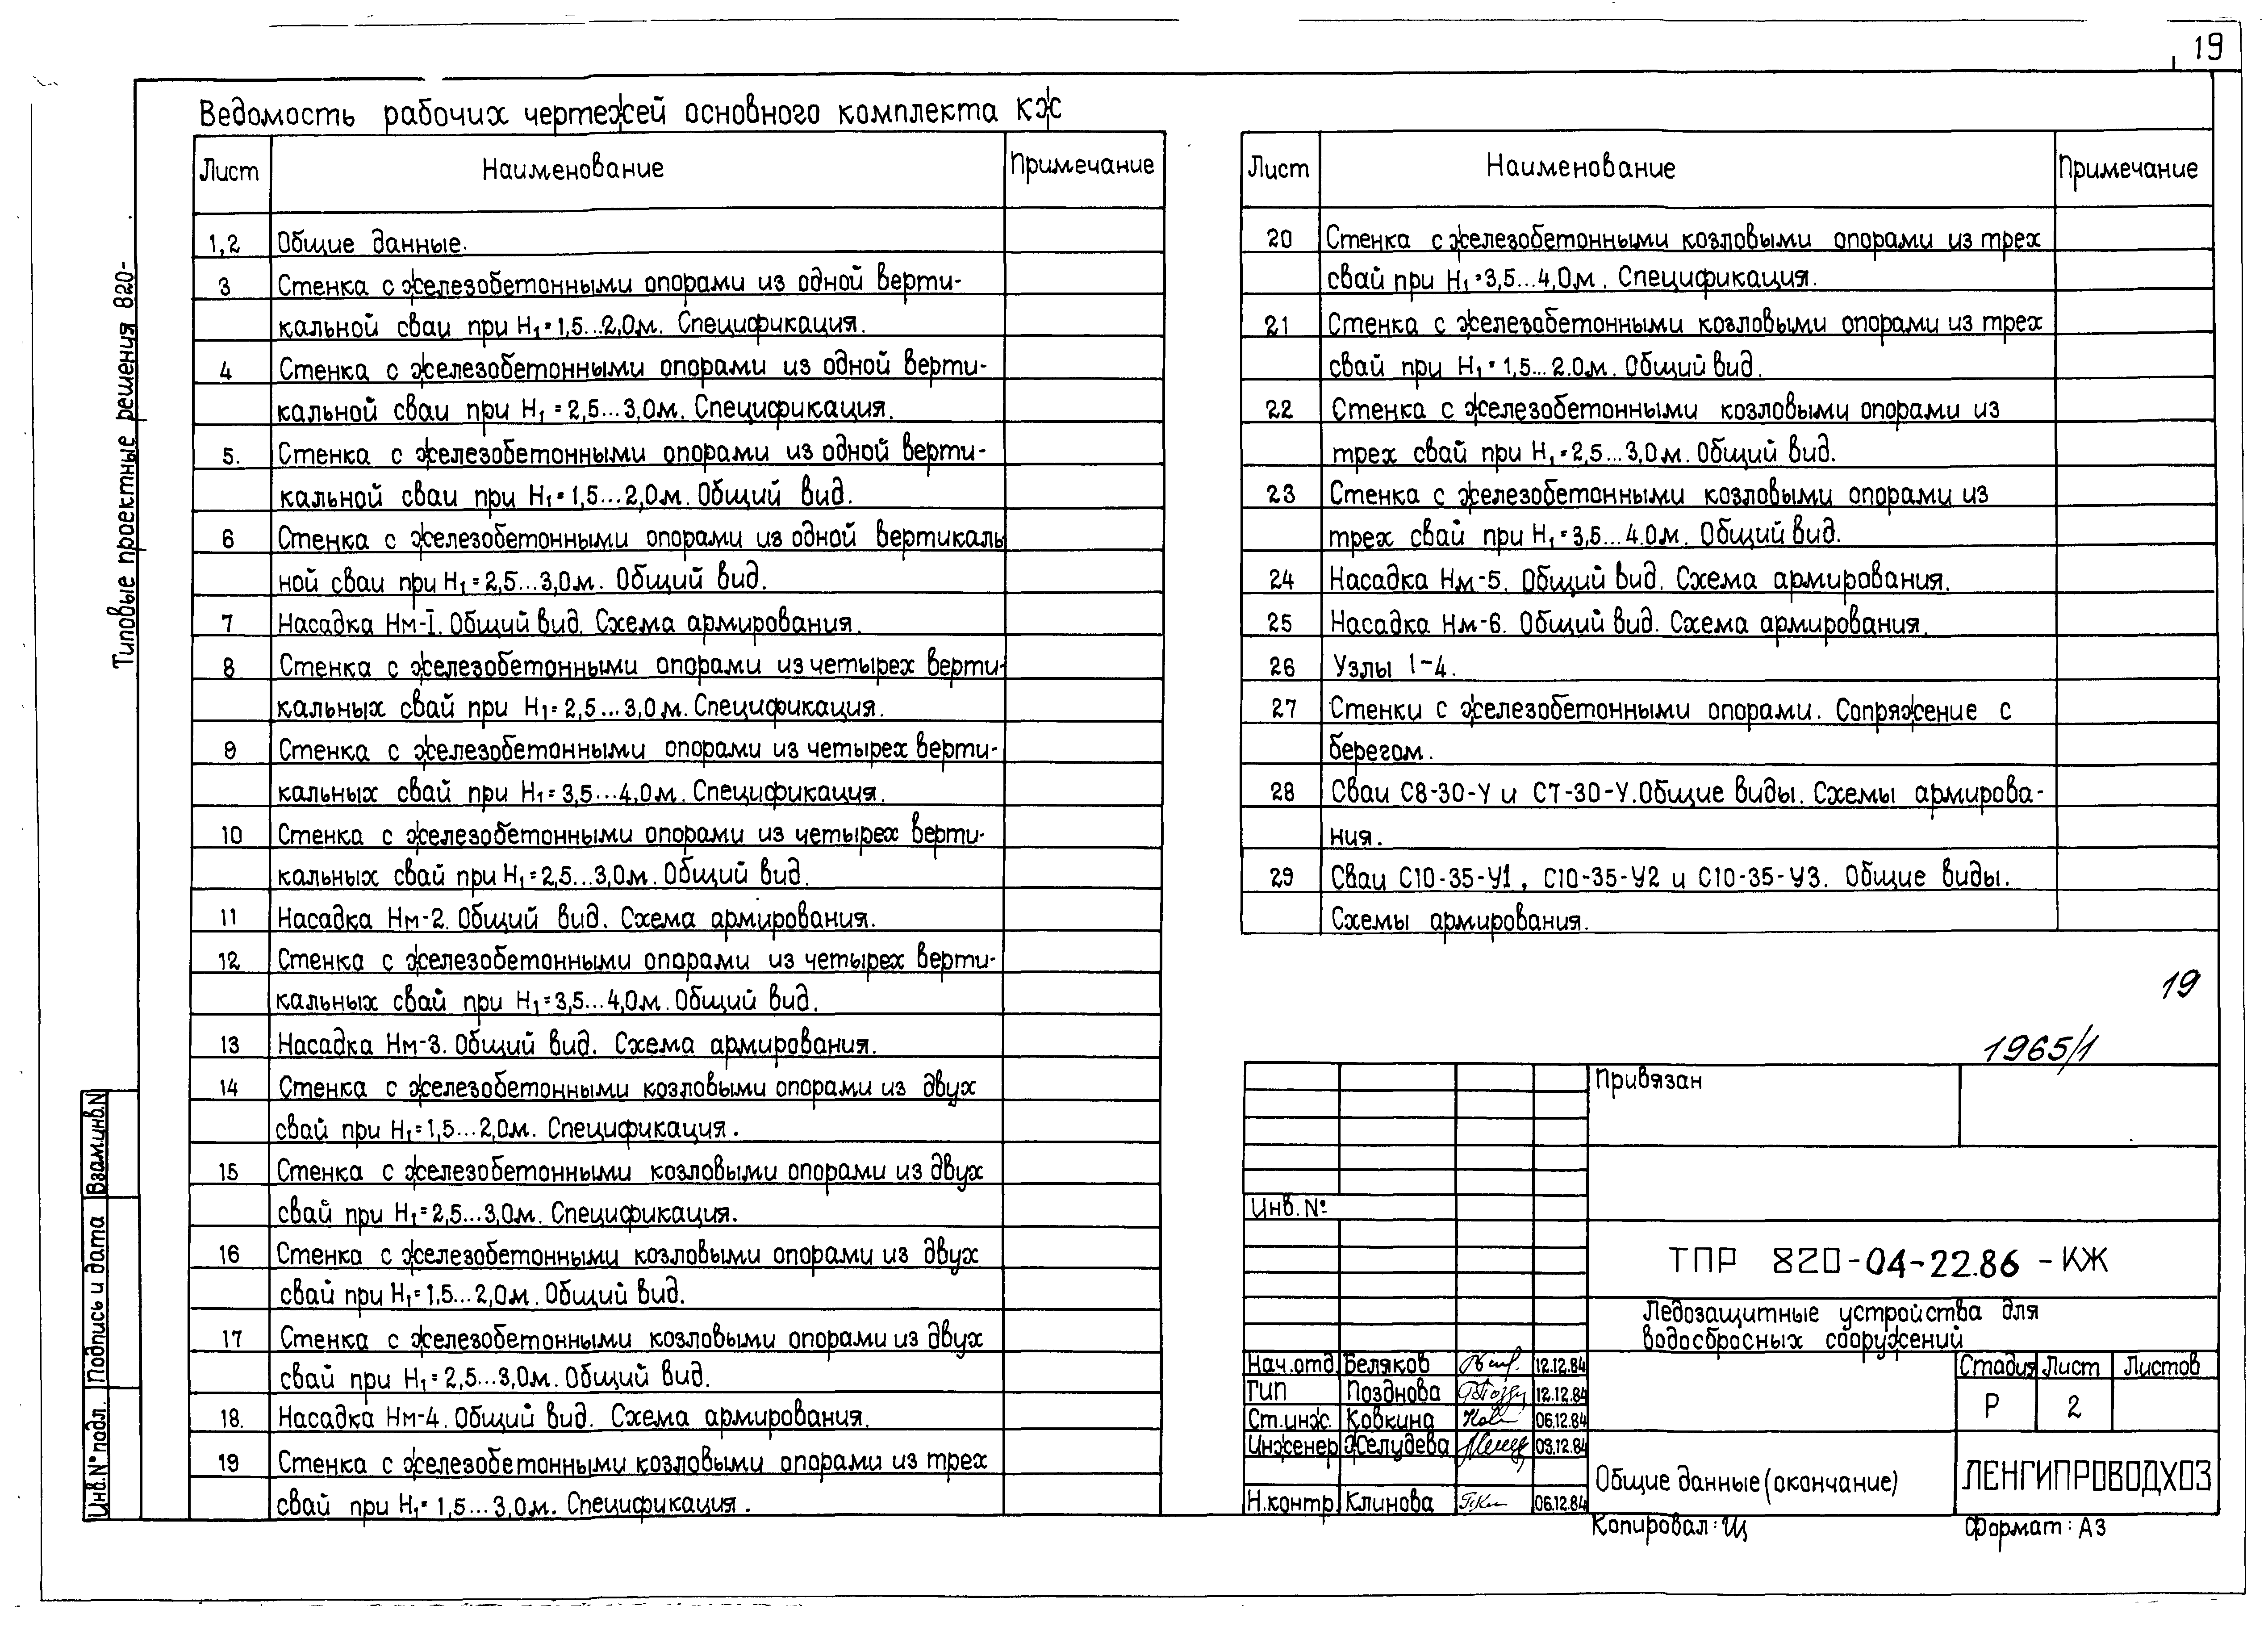 19
Ведомость рабочих чертежей основного комплекта КЖ
Лист Наименование Примечание
1,2 Общие данные.
3 Стенка с железобетонными опорами из одной верти-
кальной сваи при H1=1,5...2,0м. Спецификация.
4 Стенка с железобетонными опорами из одной верти-
кальной сваи при H1=2,5...3,0м. Спецификация.
5. Стенка с железобетонными опорами из одной верти-
кальной сваи при H1=1,5...2,0м. Общий вид.
6 Стенка с железобетонными опорами из одной вертикаль
ной сваи при H1=2,5...3,0м. Общий вид.
7 Насадка Нм-I. Общий вид. Схема армирования.
8 Стенка с железобетонными опорами из четырех верти-
кальных свай при H1=2,5...3,0м. Спецификация.
9 Стенка с железобетонными опорами из четырех верти-
кальных свай при H1=3,5...4,0м. Спецификация.
10 Стенка с железобетонными опорами из четырех верти-
кальных свай при H1=2,5...3,0м. Общий вид.
11 Насадка Нм-2. Общий вид. Схема армирования.
12 Стенка с железобетонными опорами из четырех верти-
кальных свай при H1=3,5...4,0м. Общий вид.
13 Насадка Нм-3. Общий вид. Схема армирования.
14 Стенка с железобетонными козловыми опорами из двух
свай при H1=1,5...2,0м. Спецификация.
15 Стенка с железобетонными козловыми опорами из двух
свай при H1=2,5...3,0м. Спецификация.
16 Стенка с железобетонными козловыми опорами из двух
свай при H1=1,5...2,0м. Общий вид.
17 Стенка с железобетонными козловыми опорами из двух
свай при H1=2,5...3,0м. Общий вид.
18. Насадка Нм-4. Общий вид. Схема армирования.
19 Стенка с железобетонными козловыми опорами из трех
свай при H1=1,5...3,0м. Спецификация.
Лист Наименование Примечание
20 Стенка с железобетонными козловыми опорами из трех
свай при H1=3,5...4,0м. Спецификация.
21 Стенка с железобетонными козловыми опорами из трех
свай при H1=1,5...2.0м. Общий вид.
22 Стенка с железобетонными козловыми опорами из
трех свай при H1=2,5...3,0м. Общий вид.
23 Стенка с железобетонными козловыми опорами из
трех свай при H1=3,5...4.0м. Общий вид.
24 Насадка Нм-5. Общий вид. Схема армирования.
25 Насадка Нм-6. Общий вид. Схема армирования.
26 Узлы 1-4.
27 Стенки с железобетонными опорами. Сопряжение с
берегом.
28 Сваи С8-30-У и С7-30-У. Общие виды. Схемы армирова-
ния.
29 Сваи С10-35-У1, С10-35-У2 и С10-35-У3. Общие виды.
Схемы армирования.
19
1965/1
Привязан
Инв.№
ТПР 820-04-22.86-КЖ
Ледозащитные устройства для
водосбросных сооружений
Нач.отд. Беляков 12.12.84
Гип Позднова 12.12.84
Ст.инж. Ковкина 06.12.84
Инженер Желудева 03.12.84
Н.контр. Клинова 06.12.84
Стадия Лист Листов
Р 2
Общие данные (окончание)
ЛЕНГИПРОВОДХОЗ
Копировал: Щ Формат: А3
Типовые проектные решения 820-
Взам.инв.N
Подпись и дата
Инв.№ подл.